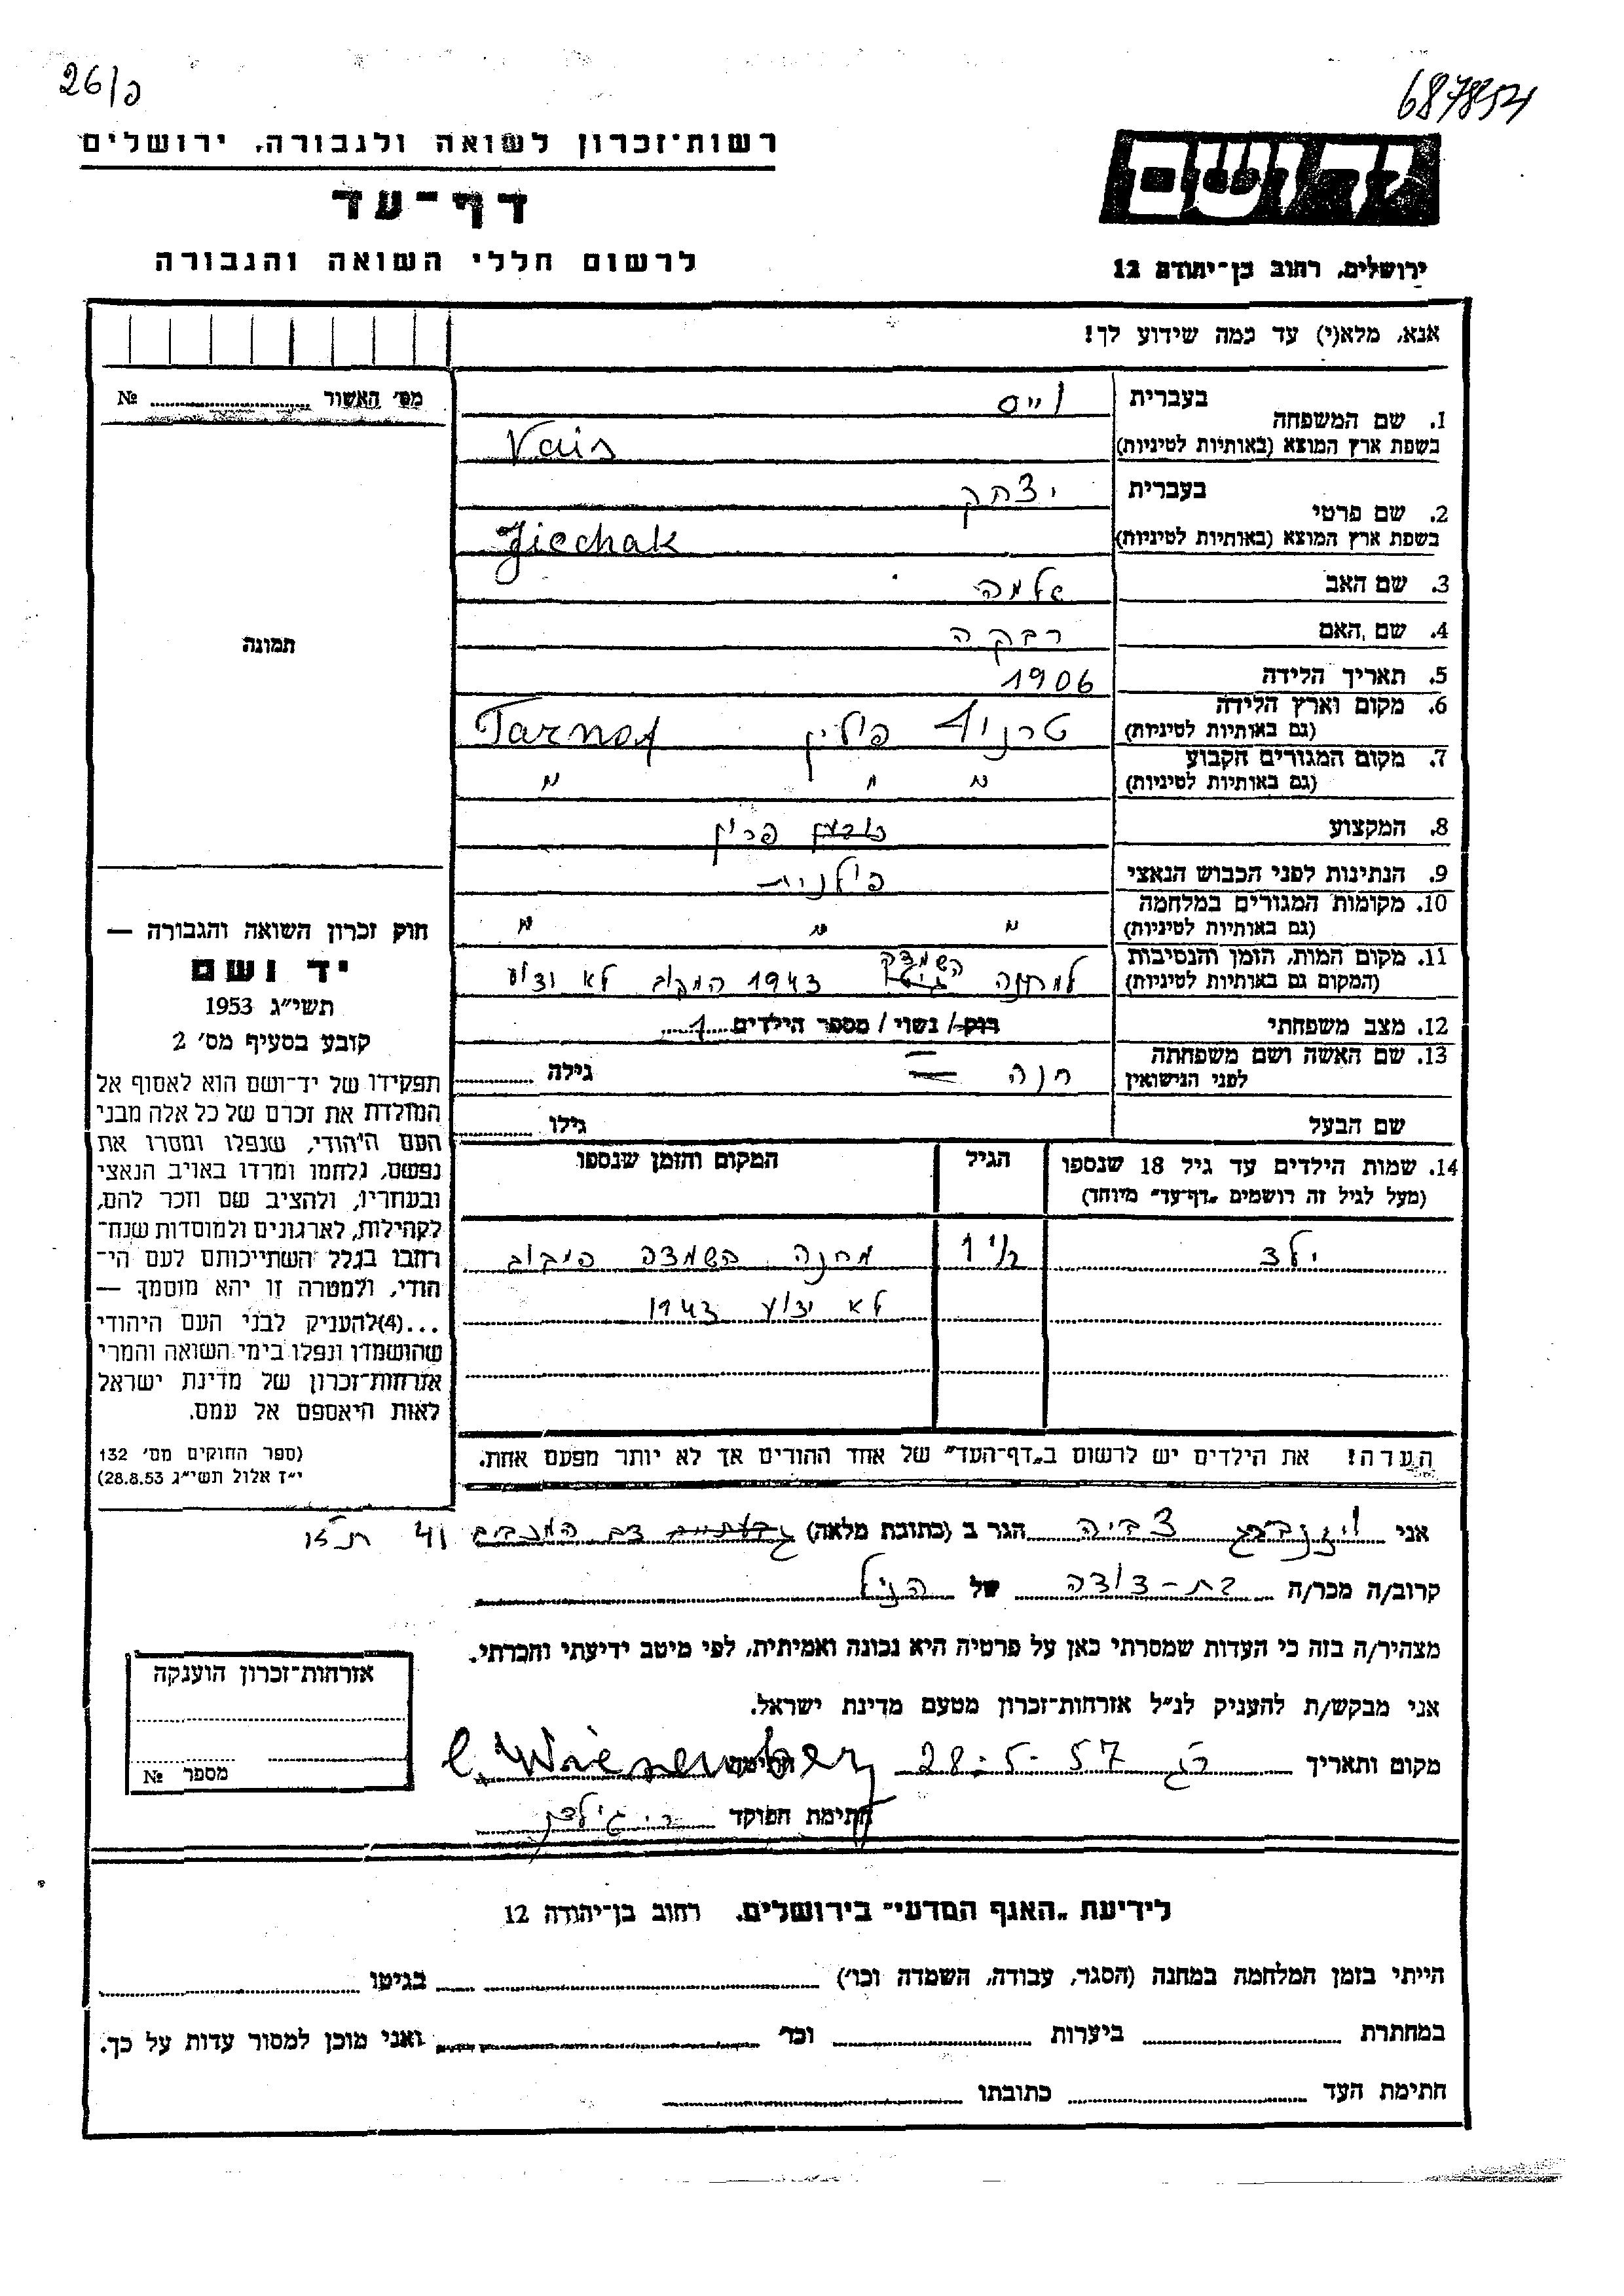 26/פ
687854
רשות־זכרון לשואה ולגבורה, ירושלים
דף־עד
לרשום חללי השואה והגבורה
יד ושם
ירושלים, רחוב בן־יהודה 12
אנא, מלא(י) עד כמה שידוע לך!
מס׳ האשור № 
1. שם המשפחה
בעברית וייס
בשפת ארץ המוצא (באותיות לטיניות) Vais
2. שם פרטי
בעברית יצחק
בשפת ארץ המוצא (באותיות לטיניות) Jicchak
3. שם האב שלמה
4. שם האם רבקה
5. תאריך הלידה 1906
6. מקום וארץ הלידה
(גם באותיות לטיניות) טרנוף פולין Tarnof
7. מקום המגורים הקבוע
(גם באותיות לטיניות) " " "
8. המקצוע
9. הנתינות לפני הכבוש הנאצי פולנית
10. מקומות המגורים במלחמה
(גם באותיות לטיניות) " " "
11. מקום המות, הזמן והנסיבות
(המקום גם באותיות לטיניות) למחנה השמדה 1943 המקום לא ידוע
12. מצב משפחתי רוק/ נשוי / מספר הילדים 1
13. שם האשה ושם משפחתה
לפני הנישואין חנה גילה
שם הבעל גילו
14. שמות הילדים עד גיל 18 שנספו
(מעל לגיל זה רושמים „דף־עד״ מיוחד)
הגיל
המקום והזמן שנספו
ילד 1 מחנה השמדה
לא ידוע 1943
הערה! את הילדים יש לרשום ב„דף־העד״ של אחד ההורים אך לא יותר מפעם אחת.
תמונה
חוק זכרון השואה והגבורה —
יד ושם
תשי״ג 1953
קובע בסעיף מס׳ 2
תפקידו של יד־ושם הוא לאסוף אל
המולדת את זכרם של כל אלה מבני
העם היהודי, שנפלו ומסרו את
נפשם, נלחמו ומרדו באויב הנאצי
ובעוזריו, ולהציב שם וזכר להם,
לקהילות, לארגונים ולמוסדות שנח־
רבו בגלל השתייכותם לעם הי־
הודי, ולמטרה זו יהא מוסמך —
...(4)להעניק לבני העם היהודי
שהושמדו ונפלו בימי השואה והמרי
אזרחות־זכרון של מדינת ישראל
לאות היאספם אל עמם.
(ספר החוקים מס׳ 132
י״ז אלול תשי״ג 28.8.53)
אני ויזנברג צביה הגר ב (כתובת מלאה) המכבים 41 ת״א
קרוב/ה מכר/ה בת-דודה של הנ״ל
מצהיר/ה בזה כי העדות שמסרתי כאן על פרטיה היא נכונה ואמיתית, לפי מיטב ידיעתי והכרתי.
אני מבקש/ת להעניק לנ״ל אזרחות־זכרון מטעם מדינת ישראל.
מקום ותאריך 28.5.57 חתימה C. Wiesenberg
חתימת הפוקד
אזרחות־זכרון הוענקה
מספר №
לידיעת „האגף המדעי״ בירושלים, רחוב בן־יהודה 12
הייתי בזמן המלחמה במחנה (הסגר, עבודה, השמדה וכו׳) בגיטו
במחתרת ביערות וכו׳ ואני מוכן למסור עדות על כך.
חתימת העד כתובתו